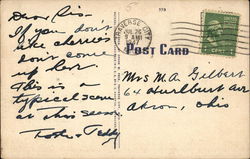 Dear Sis.
If you don't
like cherries
don't come
up here.
This is a
typical scene
at this season
TRAVERSE CITY
JUL 26
AM
1947
POST CARD
Mrs M. A. Gilbert
64 Hurlburt Ave
Akron, Ohio